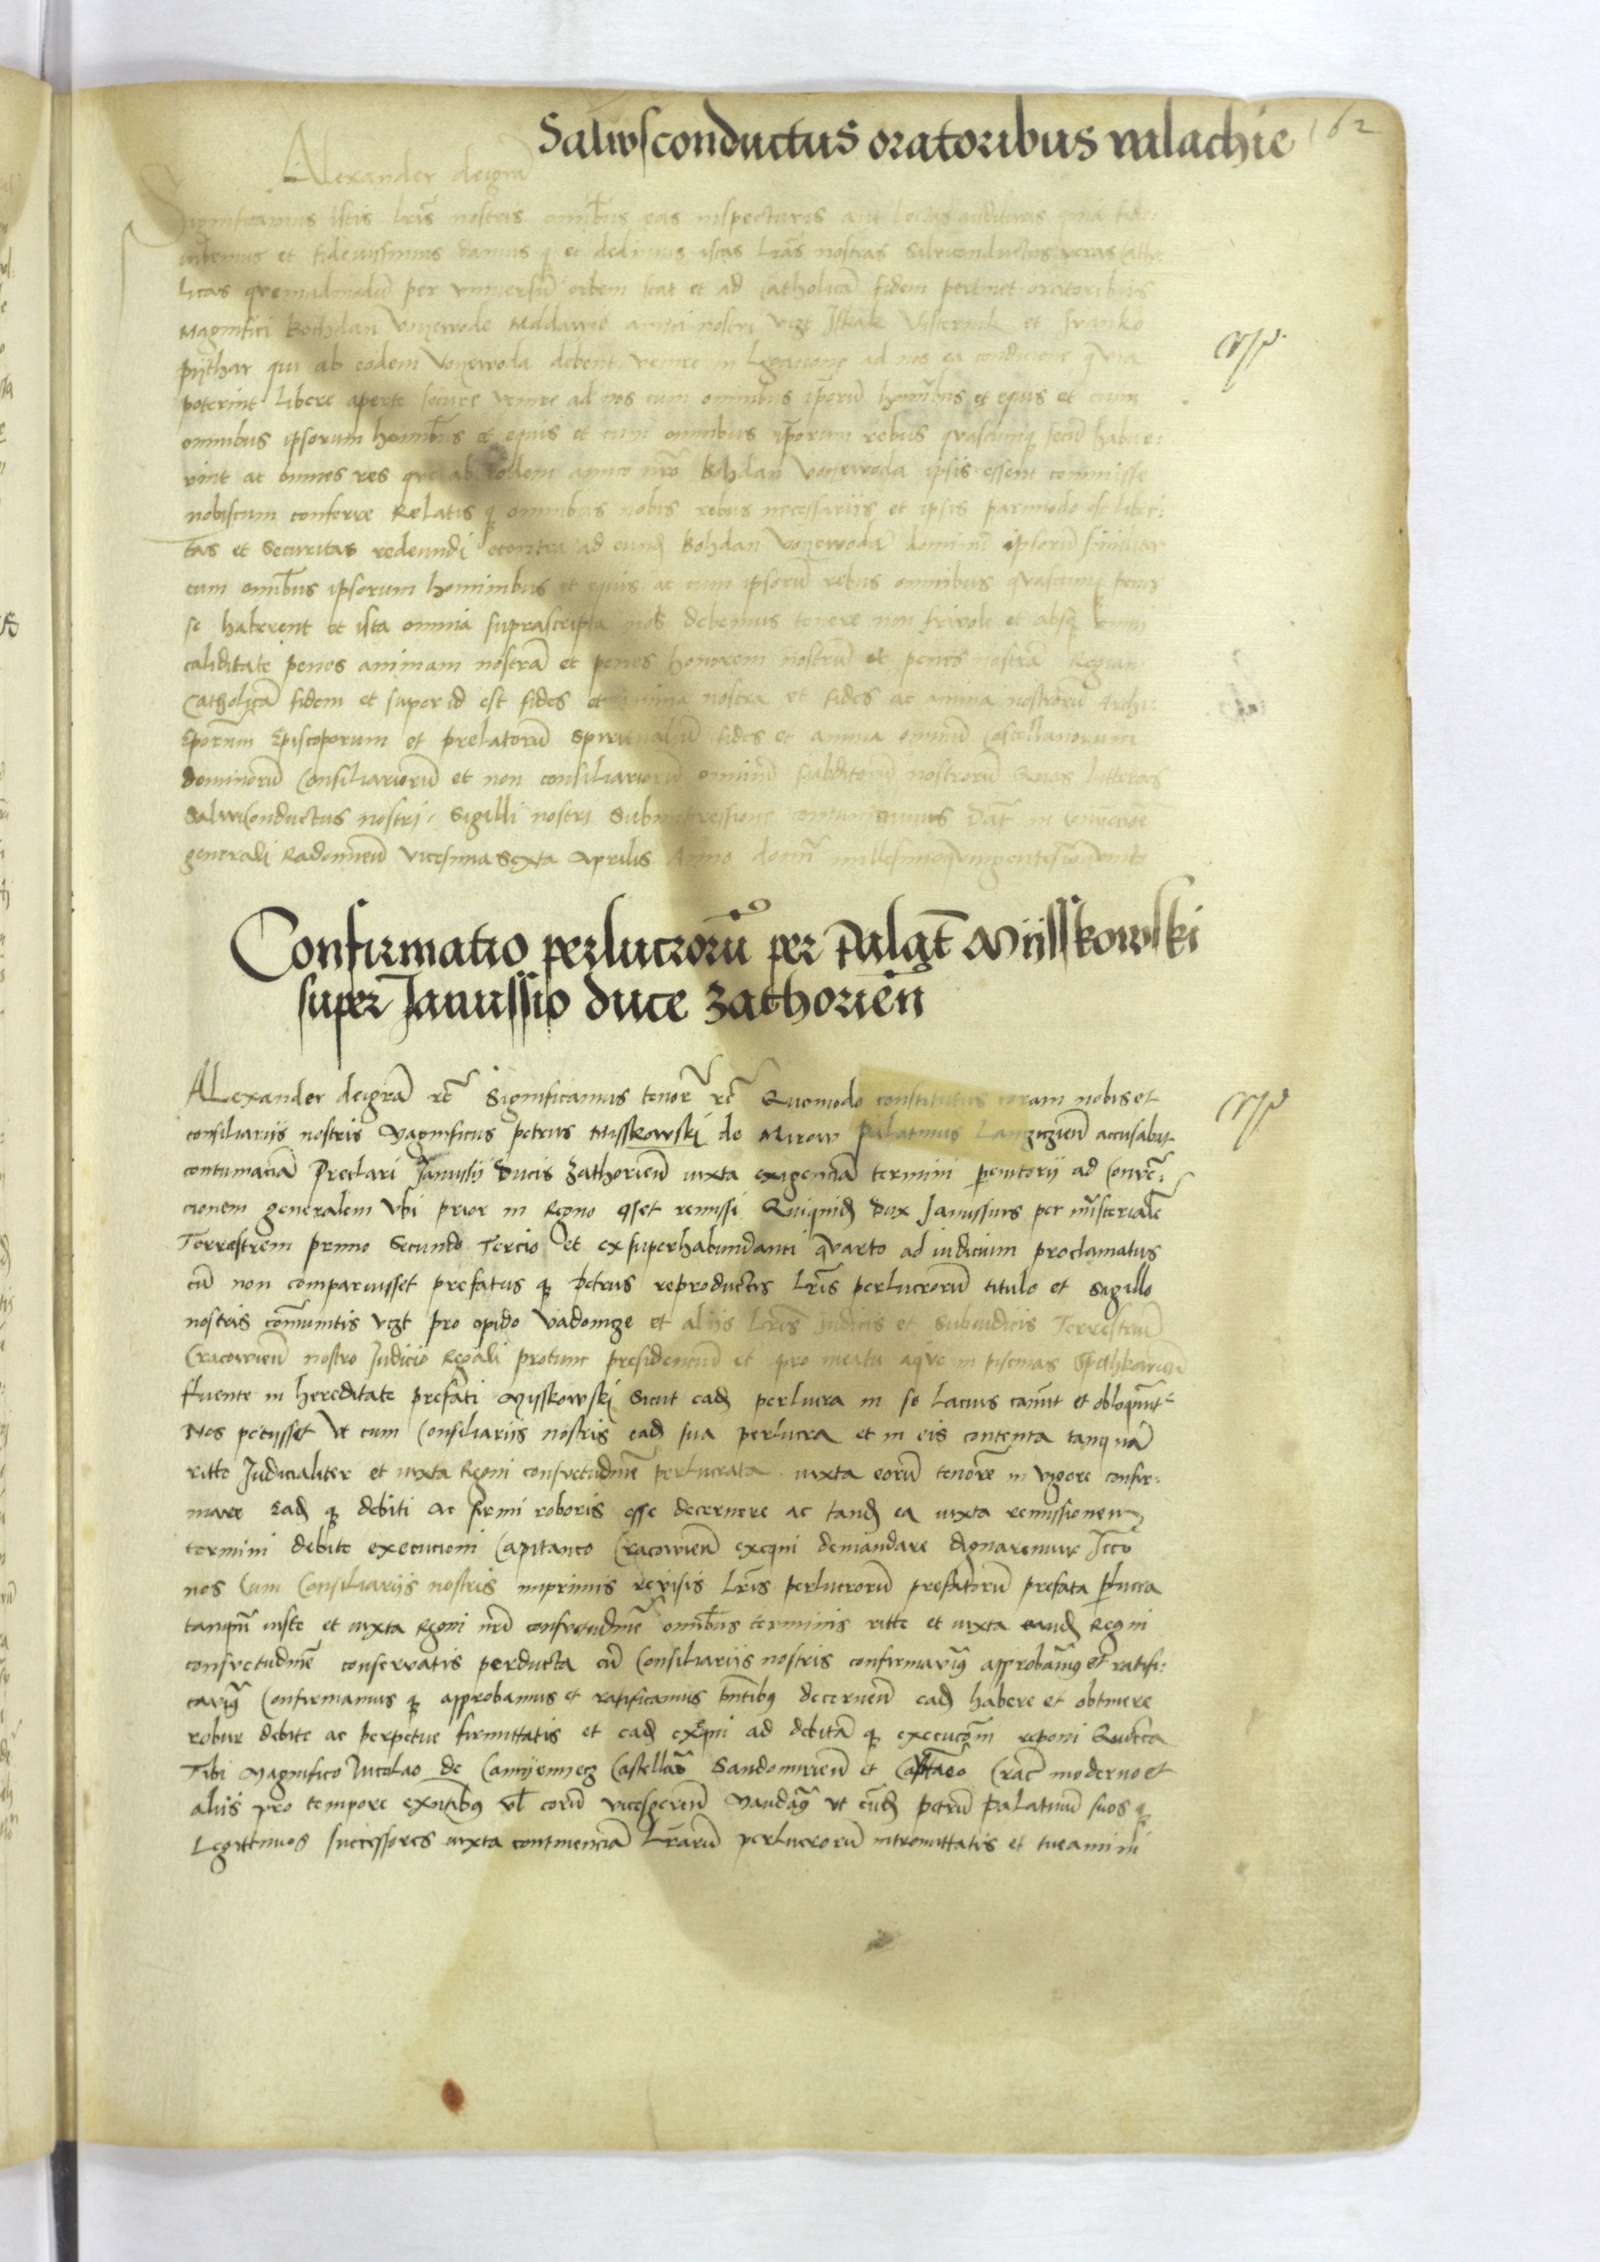 162
Salwsconductus oratoribus valachie
Alexander dei gra
Significamus istis lris nostris omibus eas inspecturis aut lectas audituris quia fide
et fidevissimus damus q et dedimus istas lras nostras Salviconductus veras Catho
licas quemadmodu per universu orbem stat et ad catholica fidem pertinet oratoribus
Magnifici Bochdan Voyewode Moldawie amici nostri vczt Isaak Visternik et Ivanko
pijthar qui ab eodem Voyewoda debent venire in legatione ad nos ea condicione q
poterint libere aperte secure venire ad nos cum omnibus ipsoru homibus et equis et cum
omnibus ipsorum homibus et equis et cum omnibus ipsorum rebus quascunq secu habue:
rint ac omnes res que ab eodem amico nro Bohdan Voyewoda ipsis essent commisse
nobiscum conferre Relatis q omnibus nobis rebus necessariis et ipsis parimodo est liber:
tas et securitas redeundi econtra ad eund Bohdan Voyewoda dominu ipsoru similiter
cum omibus ipsorum hominibus et equis ac cum ipsoru rebus omnibus quascunq circa
se haberent et ista omnia suprascripta nos debemus tenere non frivole et absq omni
caliditate penes animam nostra et penes honorem nostru et penes nostra Regiam
Catholica fidem et super id est fides et anima nostra et fides ac anima nostroru Archi
Eporum Episcoporum et prelatoru spiritualiu fides et anima omniu Castellanorum
dominoru Consiliarioru et non consiliarioru omniu subditoru nostroru Quas litteras
salwiconductus nostri sigilli nostri Subimpressione communivimus Dat in convencoe
generali Radomien vicesima sexta Aprilis Anno domi millesimoquingentesimoquinto
Confirmatio perlucroru per Palat Mijsskowski
super Janussio duce Zathorien
Alexander dei gra etc Significamus tenor etc Quomodo constitutus coram nobis et
consiliariis nostris Magnificus petrus Misskowski de Mirow palatinus Lanczicien accusabat
contumacia Preclari Janussij Ducis Zathorien iuxta exigencia termini peremtorij ad Conve:
cionem generalem Ubi prior in Regno esset remissi Quiquid Dux Janussius per misteriale
Terrestrem primo Secundo Tercio et ex superhabundanti quarto ad iudicium proclamatus
cu non comparuisset prefatus q Petrus reproductis lris perlucroru titulo et Sigillo
nostris comunitis vczt pro opido Vadowicze et aliis lris Judicis et Subiudicis Terrestriu
Cracowien nostro Judicio Regali protunc presidenciu et pro meatu aque in piscinas
fluente in hereditate prefati Myskowski Sicut ead perlucra in se lacius canut et obloqunt
Nos petisset Vt cum Consiliariis nostris ead sua perlucra et in eis contenta tanqua
ritte Judicialiter et iuxta Regni consuetudine perlucrata iuxta eoru tenore in vigore confir:
mare Ead q debiti ac firmi roboris esse decernere ac tand ea iuxta remissionem
termini debite execucioni Capitaneo Cracowien exequi demandare dignaremur Icco
nos Cum Consiliariis nostris inprimis revisis lris perlucroru prefatoru prefata plucra
tanqm iuste et iuxta Regni nri consuetudine omibus terminis ritte et iuxta eand Regni
consuetudine conservatis perducta cu Consiliariis nostris confirmavim approbavim et ratifi:
cavim Confirmamus q approbamus et ratificamus pntibus decernen ead habere et obtinere
robur debite ac perpetue firmittatis et ead exequi ad debita q execucom reponi Quocirca
Tibi Magnifico Nicolao de Camyenyecz Castellao Sandomirien et Captaeo Crac moderno et
aliis pro tempore exntibus vl eoru vicesgeren Mandam vt eud petru Palatinu suos q
Legittimos successores iuxta continencia lraru perlucroru intromittatis et tueamini